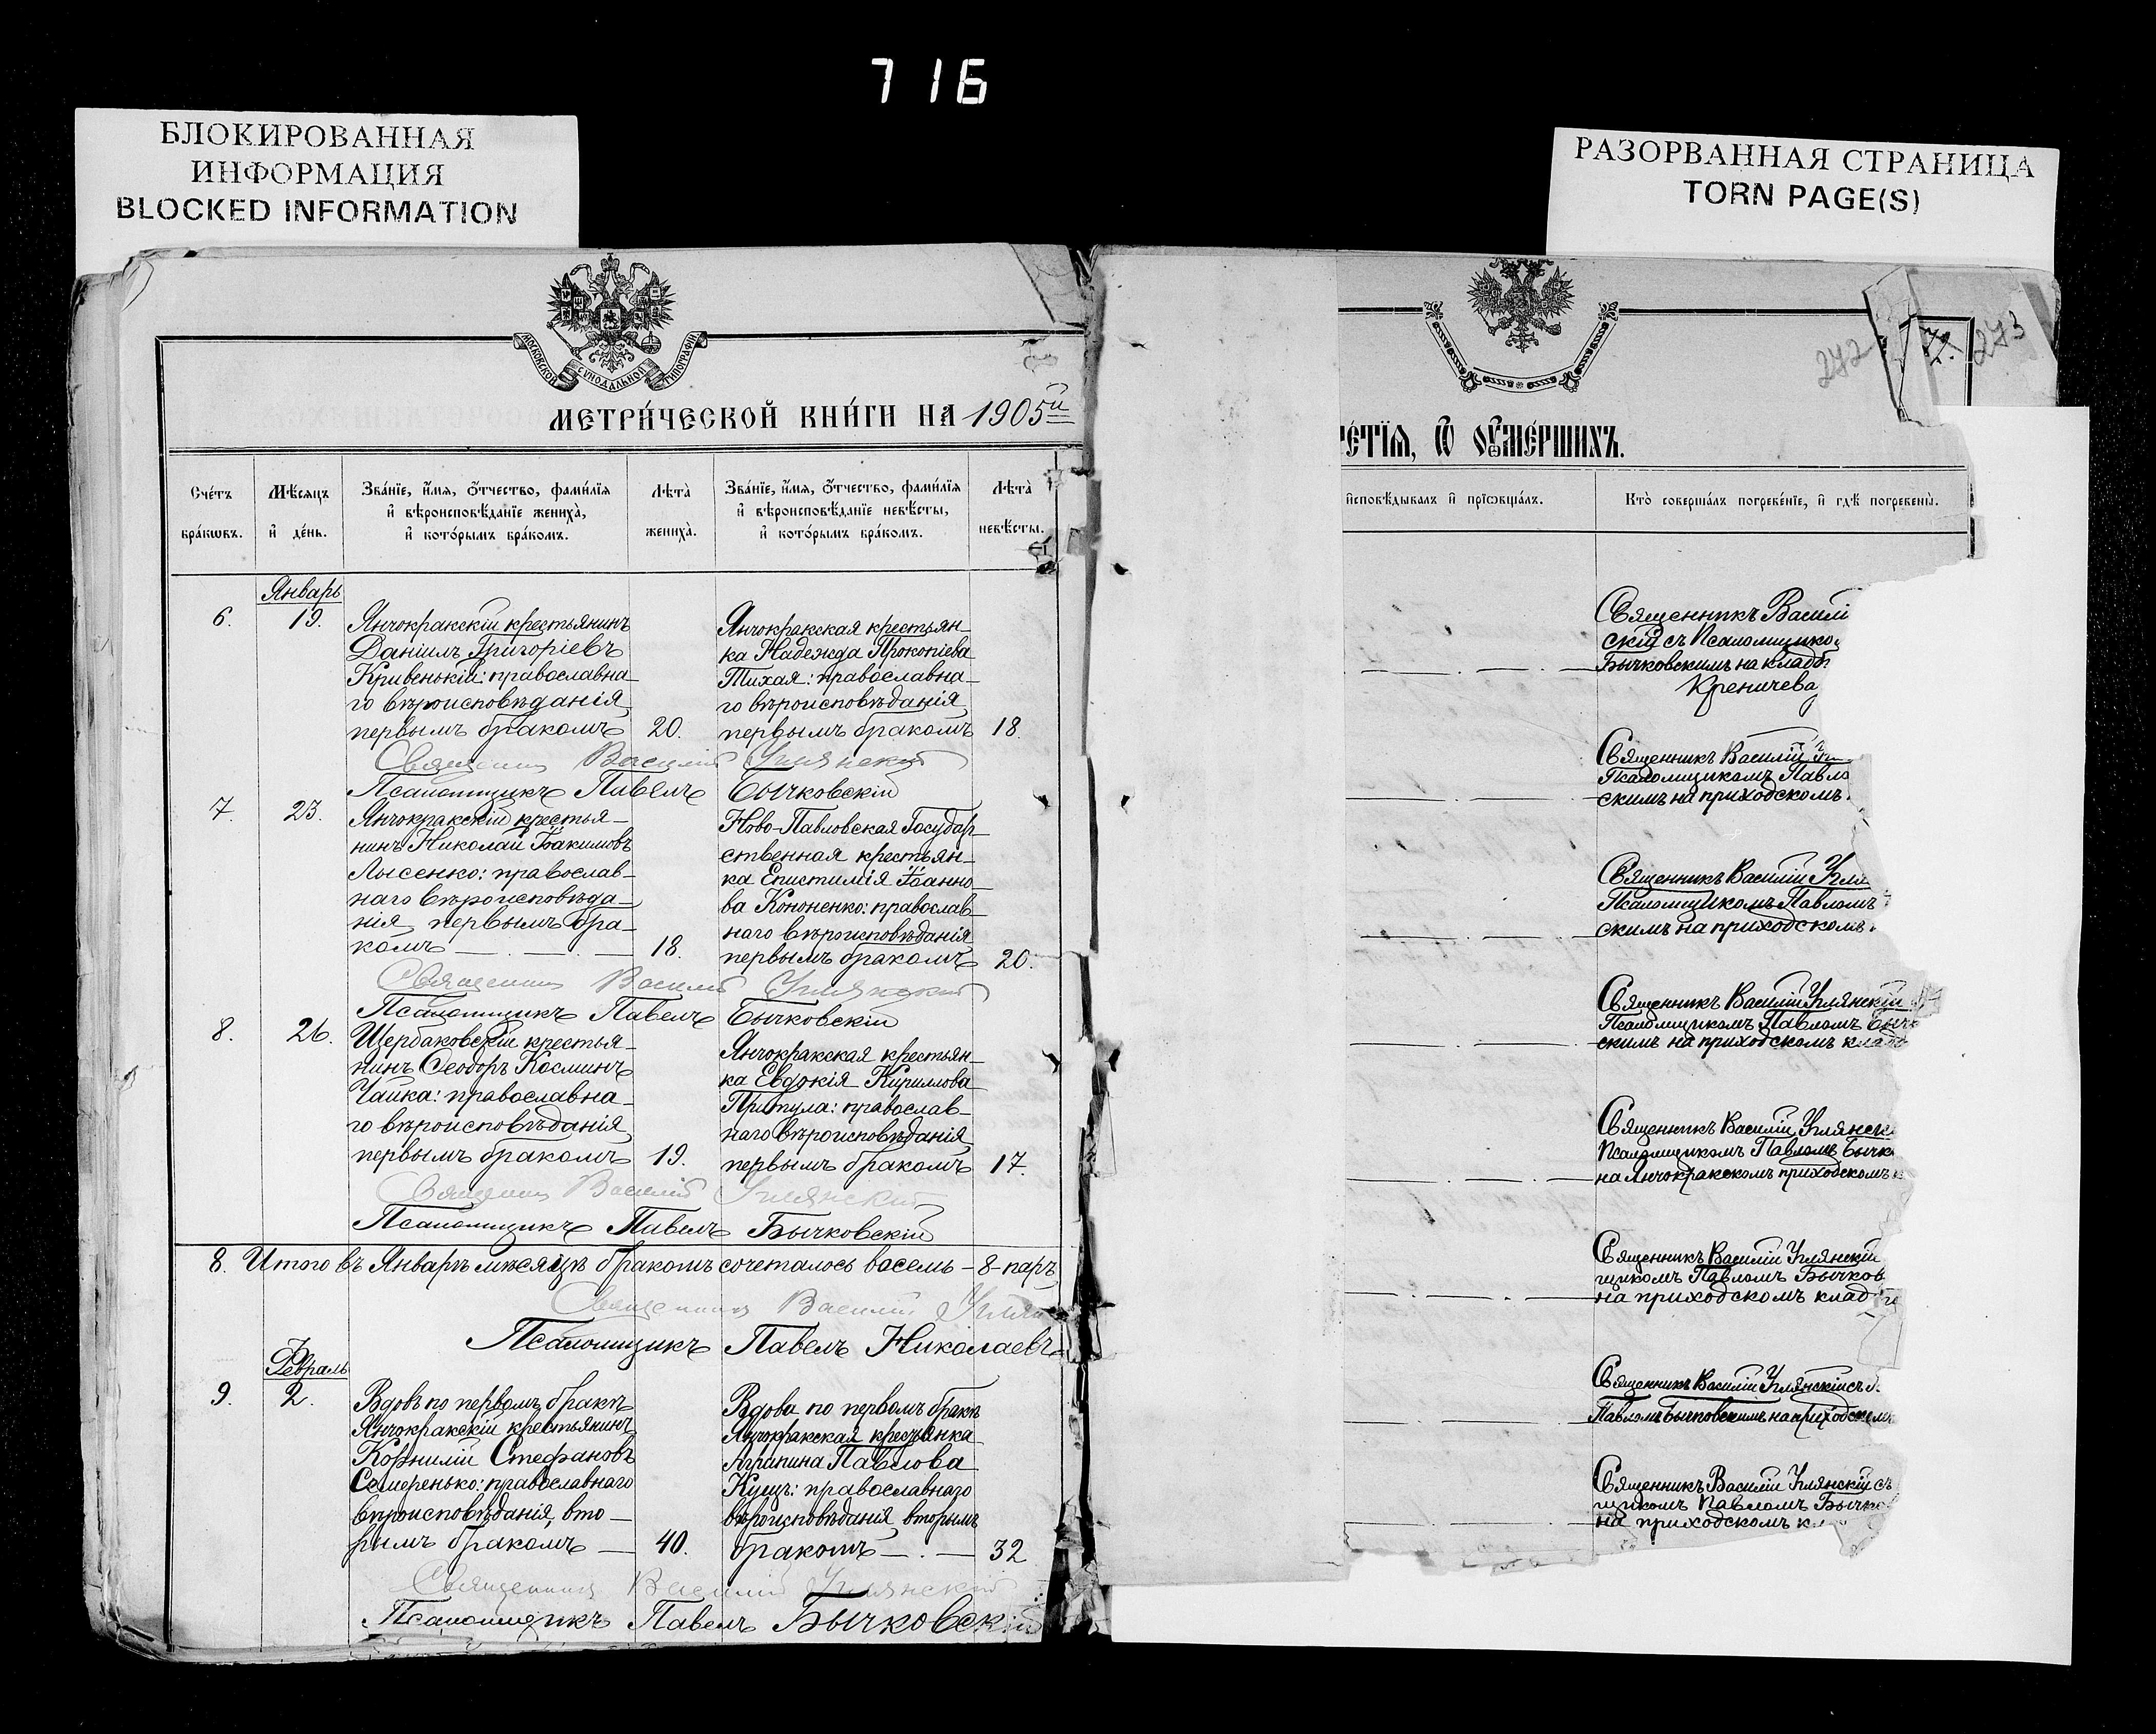 716
БЛОКИРОВАННАЯ
ИНФОРМАЦИЯ
BLOCKED INFORMATION
РАЗОРВАННАЯ СТРАНИЦА
TORN PAGE(S)
МОСКОВСКОЙ СѴНОДАЛЬНОЙ ТИПОГРАФІИ.
МЕТРИ́ЧЕСКОЙ КНИ́ГИ НА 1905й
Сче́тъ
бра́ковъ.
Мѣ́сяцъ
и҆ де́нь.
Зва́нїе, и҆́мя, ѻ҆́тчество, фами́лїя
и҆ вѣроисповѣ́данїе жениха̀,
и҆ кото́рымъ бра́комъ.
Лѣта̀
жениха̀.
Зва́нїе, и҆́мя, ѻ҆́тчество, фами́лїя
и҆ вѣроисповѣ́данїе невѣ́сты,
и҆ кото́рымъ бра́комъ.
Лѣта̀
невѣ́сты.
Январь
6. 19.
Янчокракскій крестьянинъ
Даніилъ Григоріевъ
Кривенькій: православна-
го вѣроисповѣданія
первымъ бракомъ 20.
Янчокракская крестьян-
ка Надежда Прокопіева
Тихая: православна-
го вѣроисповѣданія
первымъ бракомъ 18.
Священник Василій Углянский
Псаломщикъ Павелъ Бычковскій
7. 23.
Янчокракскій крестья-
нинъ Николай Іоакимовъ
Лысенко: православ-
наго вѣроисповѣда-
нія первымъ бра-
комъ 18.
Ново-Павловская Государ-
ственная крестьян-
ка Епистимія Іоанно-
ва Кононенко: православ-
наго вѣроисповѣданія
первымъ бракомъ 20.
Священник Василій Углянский
Псаломщикъ Павелъ Бычковскій
8. 26.
Щербаковскій крестья-
нинъ Ѳеодоръ Косминъ
Чайка: православна-
го вѣроисповѣданія
первымъ бракомъ 19.
Янчокракская крестьян-
ка Евдокія Кириллова
Притула: православ-
наго вѣроисповѣданія
первымъ бракомъ 17.
Священник Василій Углянский
Псаломщикъ Павелъ Бычковскій
8. Итого въ Январѣ мѣсяцѣ бракомъ сочеталось восемь - 8 - паръ
Священник Василій
Псаломщикъ Павелъ Николаевъ
Февраль
9. 2.
Вдовъ по первомъ бракѣ
Янчокракскій крестьянинъ
Корнилій Стефановъ
Семеренько: православнаго
вѣроисповѣданія, вто-
рымъ бракомъ 40.
Вдова по первомъ бракѣ
Янчокракская крестьянка
Агрипина Павлова
Кущъ: православнаго
вѣроисповѣданія вторымъ
бракомъ 32
Священник Василій Углянский
Псаломщикъ Павелъ Бычковскій
272
273
ЕТЇѦ, Ѿ ОУМЕ́РШИХЪ.
и҆сповѣ́дывалъ и҆ прїѡбща́лъ.
Кто̀ соверша́лъ погребе́нїе, и҆ гдѣ̀ погребены̀.
Священникъ Василі
скій съ Псаломщико
Бычковскимъ на кладб
Креничева
Священникъ Василій
Псаломщикомъ Павло
скимъ на приходскомъ
Священникъ Василій Угля
Псаломщикомъ Павломъ
скимъ на приходскомъ
Священникъ Василій Углянскій
Псаломщикомъ Павломъ Быч
скимъ на приходскомъ кладб
Священникъ Василій Углянск
Псаломщикомъ Павломъ Бычк
на Янчокракскомъ приходскомъ
Священникъ Василій Углянскій
щикомъ Павломъ Бычков
на приходскомъ клад
Священникъ Василій Углянскій съ
Павломъ Бычковскимъ на приходском
Священникъ Василій Углянскій съ
щикомъ Павломъ Бычков
на приходскомъ к